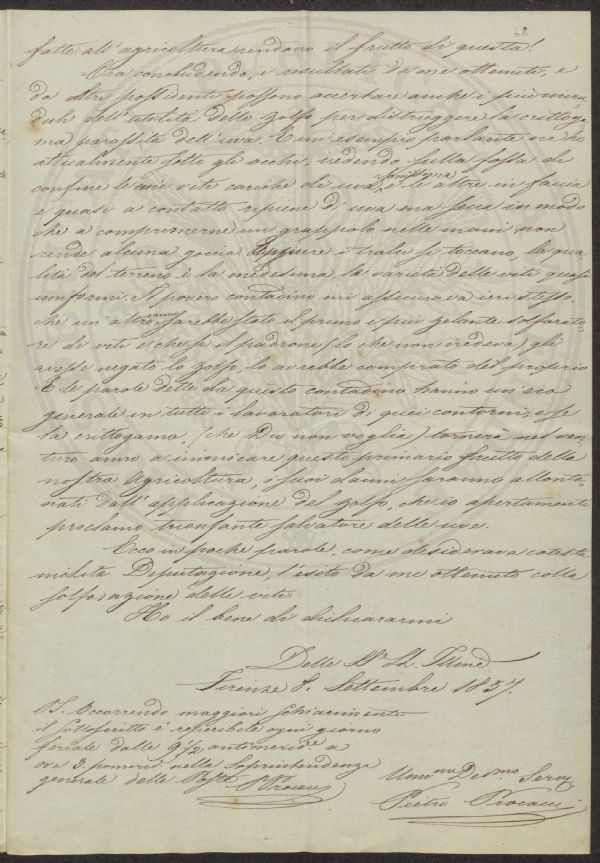 48
fatte all'agricoltura rendano il frutto di questa!
Ora conchidendo, i resultati da me ottenuti, e
da altri possidenti possono accertare anche i più incre
duli dell'utilità dello zolfo per distruggere la crittoga
ma parassita dell'uva. E un'esempio parlante ne ho
attualmente sotto gli occhi, vedendo sulla fossa di
confine le mie viti cariche di uva sanissima e le altre in faccia
e quasi a contatto ripiene d'uva ma secca in modo
che a comprimerne un grappolo nelle mani, non
rende alcuna goccia Eppure i tralci si toccano, la qua
lità del terreno è la medesima la varietà delle viti quasi
uniformi. Il povero contadino mi assicurava ieri stesso,
che un'altr'anno sarebbe stato il primo e più zelante solforato
re di viti e che se il padrone (lo che non credeva) gli
avesse negato lo zolfo, lo avrebbe comprato del proprio
E le parole dette da questo contadino hanno un'eco
generale in tutti i lavoratori di quei contorni, e se
la crittogama, (che Dio non voglia) tornerà nel ven
turo anno a inimicare questo primario frutto della
nostra Agricoltura, i suoi danni saranno allonta
nati dall'applicazione del zolfo, che io apertamente
proclamo trionfante salvatore delle uve.
Ecco in poche parole, come desiderava cotesta
inclita Deputazione, l'esito da me ottenuto colla
solforazione delle viti.
Ho il bene di dichiararmi
Delle SS. LL. Illme
Firenze 8. Settembre 1857.
PS. Occorrendo maggiori schiarimenti
il sottoscritto è reperibile ogni giorno
feriale dalle 9 1/2 antimeride a
ore 3. pomerid. nella Soprintendenza
generale delle Poste PProcacci
Umimo Devmo Serv
Pietro Procacci